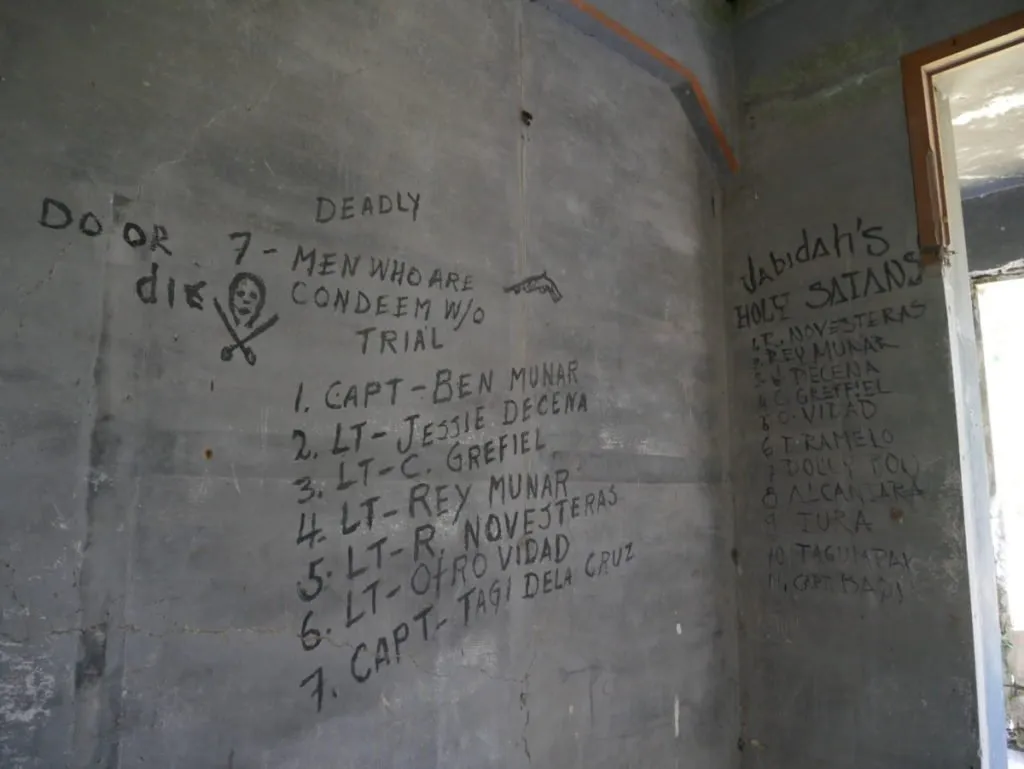 DO OR
die
DEADLY
7- MEN WHO ARE
CONDEEM W/O
TRIAL
1. CAPT-BEN MUNAR
2. LT-JESSIE DECENA
3. LT-C. GREFIEL
4. LT-REY MUNAR
5. LT-R. NOVESTERAS
6. LT-OTRO VIDAD
7. CAPT-TAGI DELA CRUZ
Jabidah's
HOLY SATANS
NOVESTERAS
REY MUNAR
DECENA
C. GREFFIEL
VIDAD
6 RAMELO
DOLLY
8 ALCANTARA
9 TURA
10
11. CAPT.